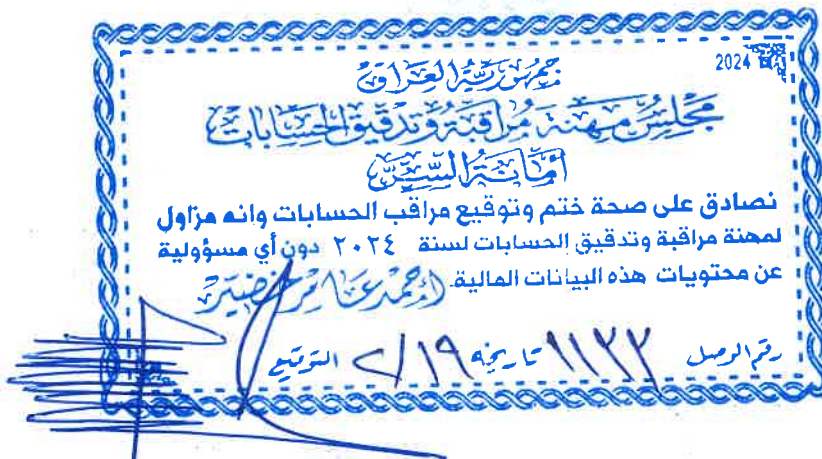 2024
جمهورية العراق
مجلس مهنة مراقبة وتدقيق الحسابات
أمانة السر
نصادق على صحة ختم وتوقيع مراقب الحسابات وانه مزاول
لمهنة مراقبة وتدقيق الحسابات لسنة ٢٠٢٤ دون أي مسؤولية
عن محتويات هذه البيانات المالية. احمد عامر خضير
رقم الوصل ٩١٢٣ تاريخه ٢/١٩ التوقيع